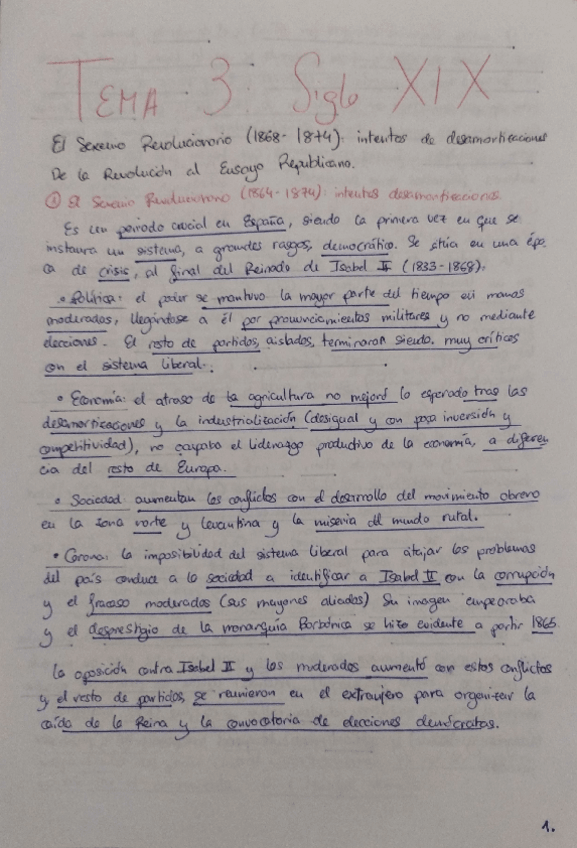 TEMA 3: Siglo XIX
El Sexenio Revolucionario (1868-1874): intentos de desamortizaciones
De la Revolución al Ensayo Republicano.
① El Sexenio Revolucionario (1864-1874): intentos desamortizaciones.
Es un periodo crucial en España, siendo la primera vez en que se
instaura un sistema, a grandes rasgos, democrático. Se sitúa en una épo
ca de crisis, al final del Reinado de Isabel II (1833-1868).
• Política: el poder se mantuvo la mayor parte del tiempo en manos
moderados, llegándose a él por pronunciamientos militares y no mediante
elecciones. El resto de partidos, aislados, terminaron siendo muy críticos
con el sistema liberal.
• Economía: el atraso de la agricultura no mejoró lo esperado tras las
desamortizaciones y la industrialización (desigual y con poca inversión y
competitividad), no ocupaba el liderazgo productivo de la economía, a diferen
cia del resto de Europa.
• Sociedad: aumentan los conflictos con el desarrollo del movimiento obrero
en la zona norte y levantina y la miseria del mundo rural.
• Corona: la imposibilidad del sistema liberal para atajar los problemas
del país conduce a la sociedad a identificar a Isabel II con la corrupción
y el fracaso moderados (sus mayores aliados) Su imagen empeoraba
y el desprestigio de la monarquía Borbónica se hizo evidente a partir 1865.
la oposición contra Isabel II y los moderados aumentó con estos conflictos
y el resto de partidos, se reunieron en el extranjero para organizar la
caída de la Reina y la convocatoria de elecciones demócratas.
1.